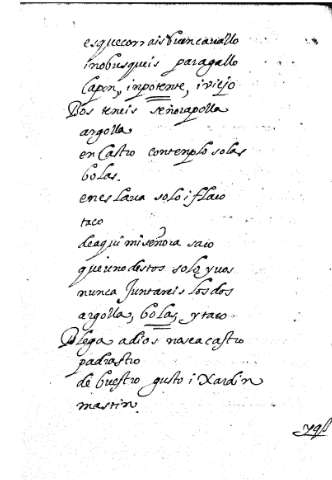 es que corrais buen cavallo
i no busqueis para gallo
Capon, inpotente, i viejo
Dos teneis señora polla
argolla
en Castro contemplo solas
bolas.
en eslava solo i flaco
taco
de aqui mi señora saco
que uno destos solo y vos
nunca Juntareis los dos
argolla, bolas, y taco
Plega a dios no sea castro
padrastro
de buestro gusto i Xardin
mastin.